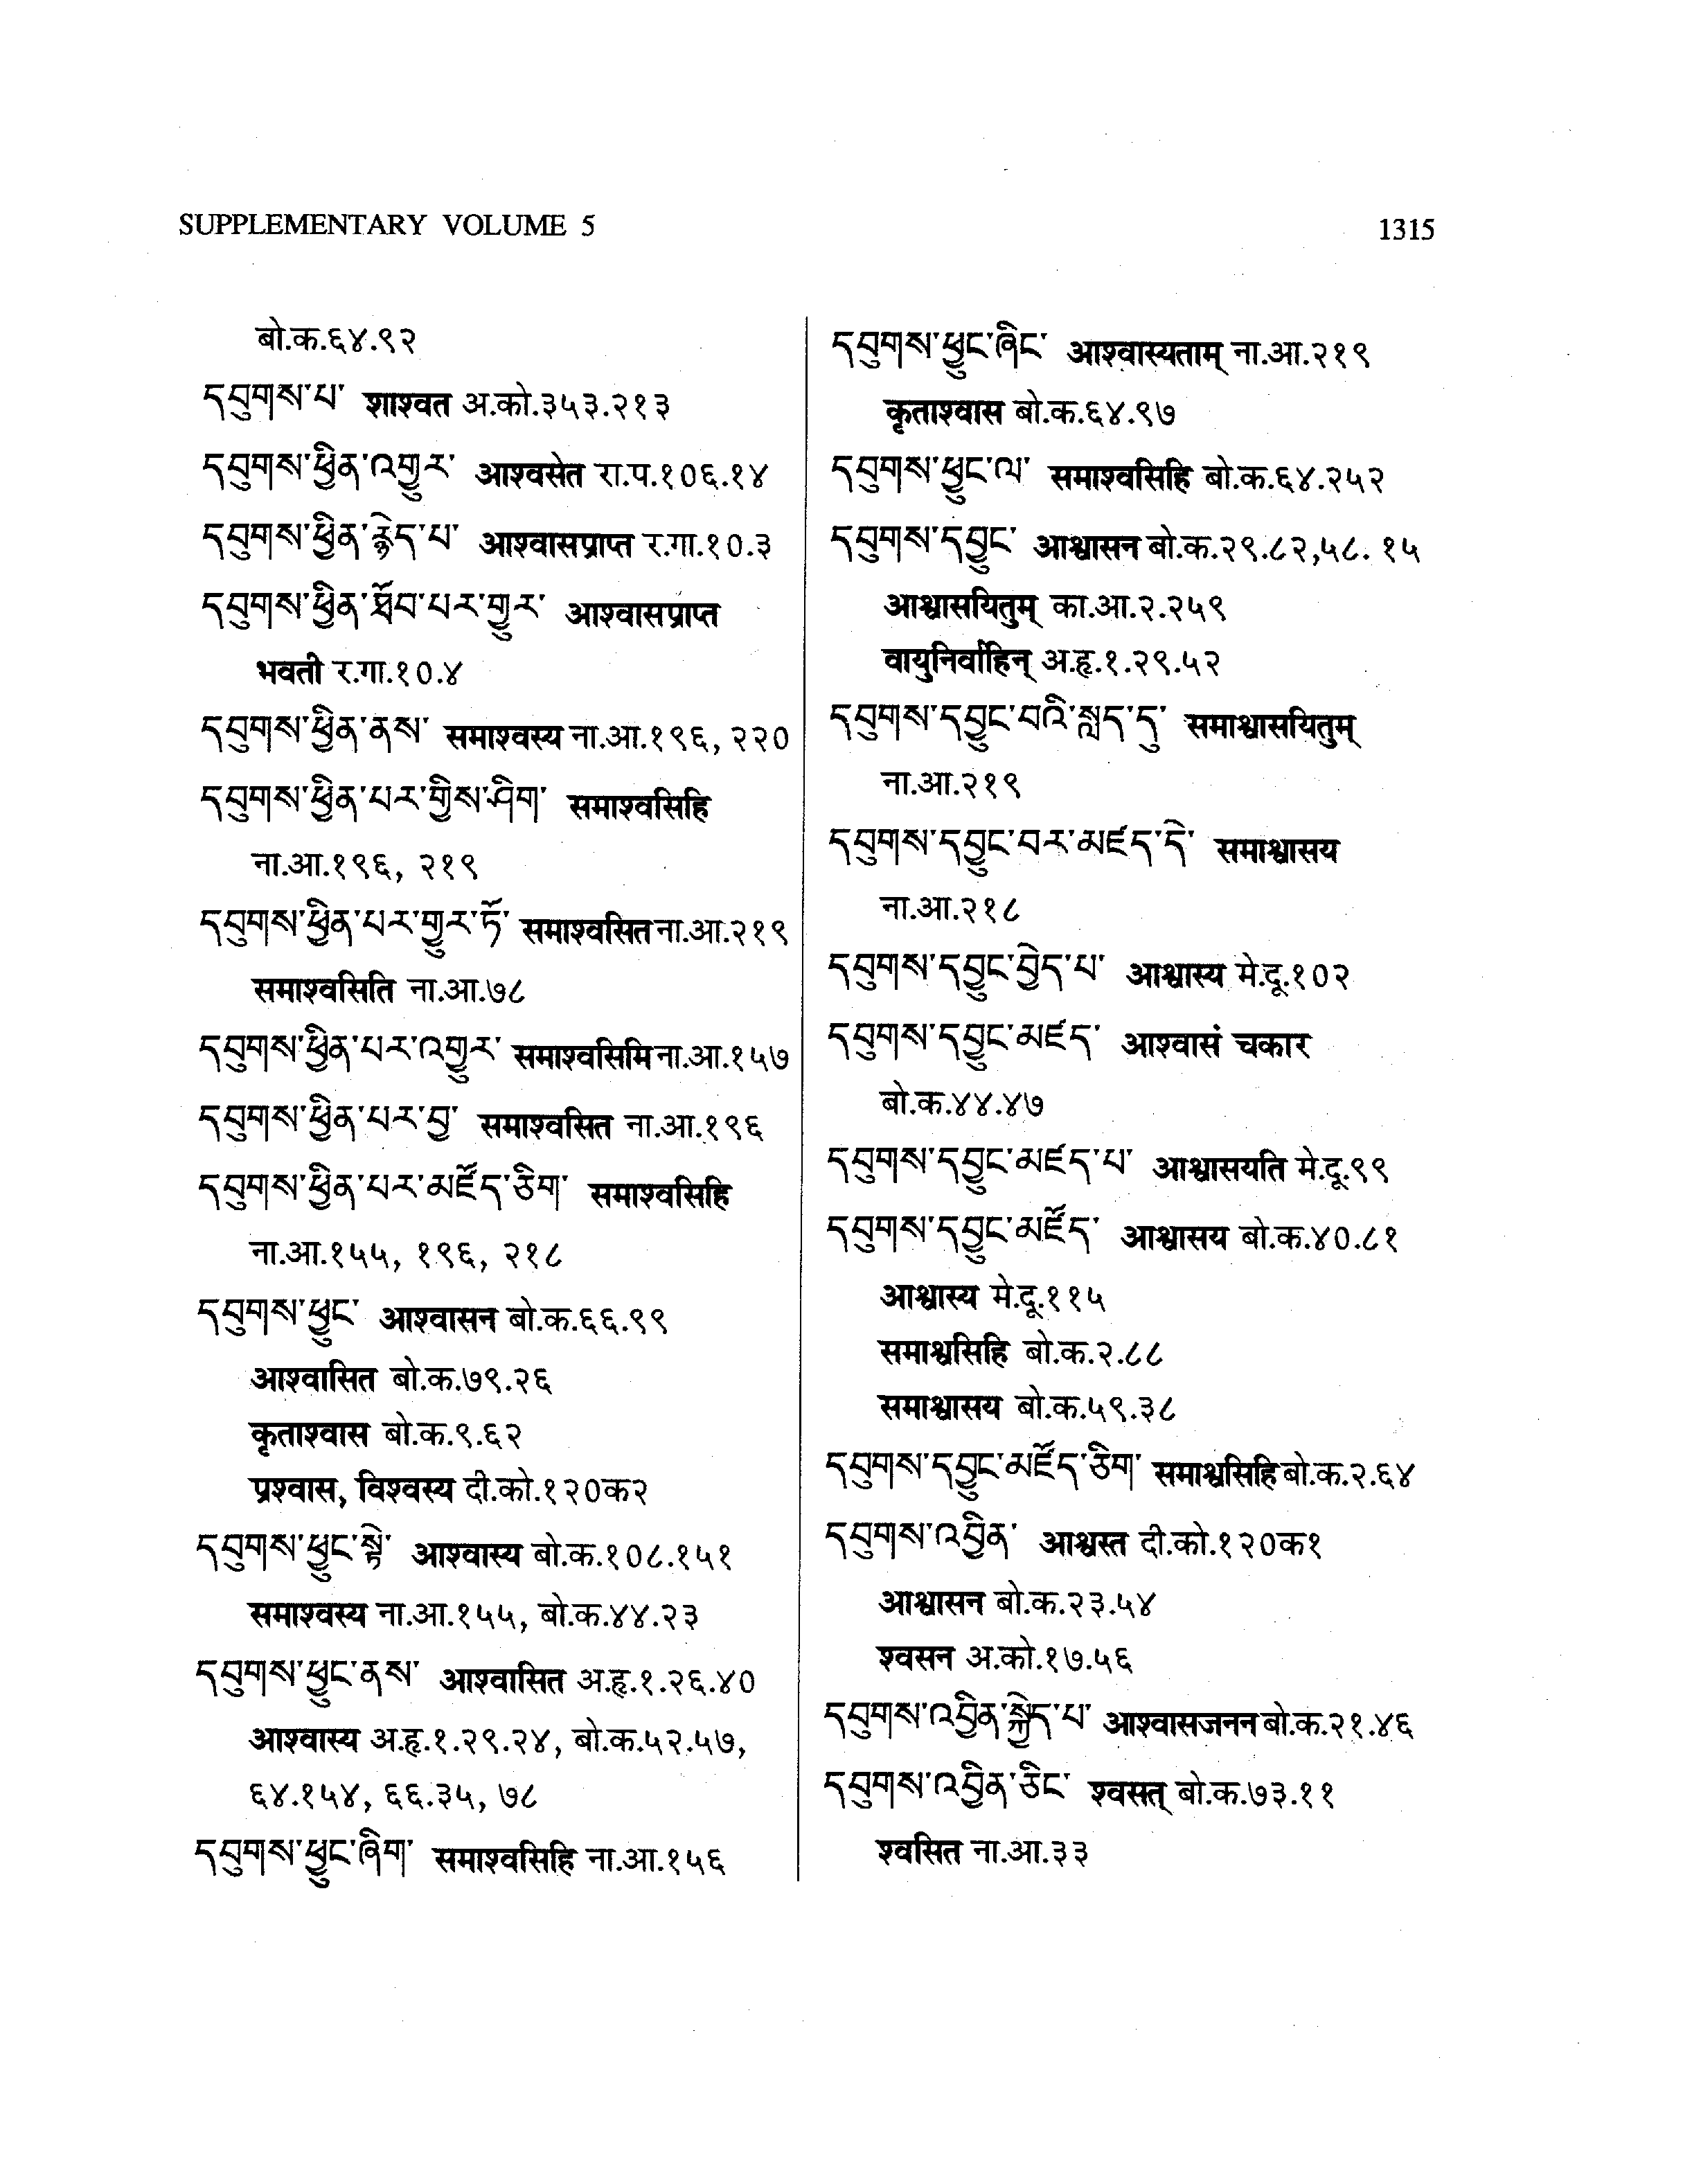 SUPPLEMENTARY VOLUME 5
1315
बो.क.६४.९२
དབུགས་པ་ शाश्वत अ.को.३५३.२१३
དབུགས་ཕྱིན་འགྱུར་ आश्वसेत रा.प.१०६.१४
དབུགས་ཕྱིན་རྙེད་པ་ आश्वासप्राप्त र.गा.१०.३
དབུགས་ཕྱིན་ཐོབ་པར་གྱུར་ आश्वासप्राप्त
भवती र.गा.१०.४
དབུགས་ཕྱིན་ནས་ समाश्वस्य ना.आ.१९६, २२०
དབུགས་ཕྱིན་པར་གྱིས་ཤིག་ समाश्वसिहि
ना.आ.१९६, २१९
དབུགས་ཕྱིན་པར་གྱུར་ཏོ་ समाश्वसित ना.आ.२१९
समाश्वसिति ना.आ.७८
དབུགས་ཕྱིན་པར་འགྱུར་ समाश्वसिमि ना.आ.१५७
དབུགས་ཕྱིན་པར་བྱ་ समाश्वसित ना.आ.१९६
དབུགས་ཕྱིན་པར་མཛོད་ཅིག་ समाश्वसिहि
ना.आ.१५५, १९६, २१८
དབུགས་ཕྱུང་ आश्वासन बो.क.६६.९९
आश्वासित बो.क.७९.२६
कृताश्वास बो.क.९.६२
प्रश्वास, विश्वस्य दी.को.१२०क२
དབུགས་ཕྱུང་སྟེ་ आश्वास्य बो.क.१०८.१५१
समाश्वस्य ना.आ.१५५, बो.क.४४.२३
དབུགས་ཕྱུང་ནས་ आश्वासित अ.हृ.१.२६.४०
आश्वास्य अ.हृ.१.२९.२४, बो.क.५२.५७,
६४.१५४, ६६.३५, ७८
དབུགས་ཕྱུང་ཞིག་ समाश्वसिहि ना.आ.१५६
དབུགས་ཕྱུང་ཞིང་ आश्वास्यताम् ना.आ.२१९
कृताश्वास बो.क.६४.९७
དབུགས་ཕྱུང་ལ་ समाश्वसिहि बो.क.६४.२५२
དབུགས་དབྱུང་ आश्वासन बो.क.२९.८२,५८. १५
आश्वासयितुम् का.आ.२.२५९
वायुनिर्वाहिन् अ.हृ.१.२९.५२
དབུགས་དབྱུང་བའི་སླད་དུ་ समाश्वासयितुम्
ना.आ.२१९
དབུགས་དབྱུང་བར་མཛད་དེ་ समाश्वासय
ना.आ.२१८
དབུགས་དབྱུང་བྱེད་པ་ आश्वास्य मे.दू.१०२
དབུགས་དབྱུང་མཛད་ आश्वासं चकार
बो.क.४४.४७
དབུགས་དབྱུང་མཛད་པ་ आश्वासयति मे.दू.९९
དབུགས་དབྱུང་མཛོད་ आश्वासय बो.क.४०.८१
आश्वास्य मे.दू.११५
समाश्वसिहि बो.क.२.८८
समाश्वासय बो.क.५९.३८
དབུགས་དབྱུང་མཛོད་ཅིག་ समाश्वसिहि बो.क.२.६४
དབུགས་འབྱིན་ आश्वस्त दी.को.१२०क१
आश्वासन बो.क.२३.५४
श्वसन अ.को.१७.५६
དབུགས་འབྱིན་སྐྱེད་པ་ आश्वासजनन बो.क.२१.४६
དབུགས་འབྱིན་ཅིང་ श्वसत् बो.क.७३.११
श्वसित ना.आ.३३